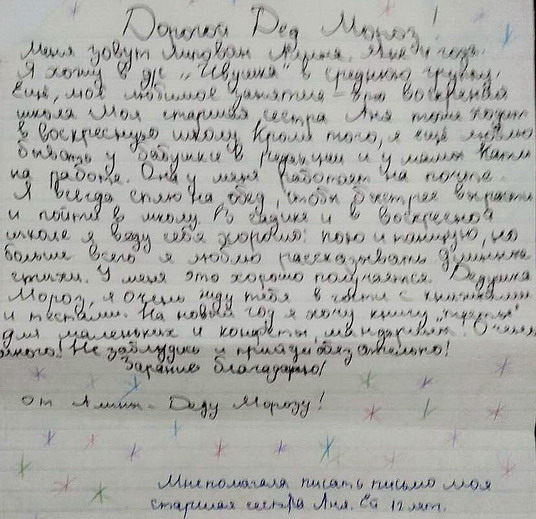 Дорогой Дед Мороз!
Меня зовут Алина. Мне 4 года.
Я хожу в д/с "Ивушка" в среднюю группу.
Ещё, моё любимое занятие - это воскресная
школа. Моя старшая сестра Аня тоже ходит
в воскресную школу. Кроме того, я ещё люблю
бывать у бабушки в редакции и у мамы Кати
на работе. Она у меня работает на почте.
Я всегда сплю на обед, чтобы быстрее вырасти
и пойти в школу. В садике и в воскресной
школе я веду себя хорошо: пою и танцую, но
больше всего я люблю рассказывать длинные
стихи. У меня это хорошо получается. Дедушка
Мороз, я очень жду тебя в гости с книжками
и тестами. На новый год я хочу книгу
для маленьких и конфеты, мандарины! Очень
много. Не заблудись и приходи обязательно!
Заранее благодарю!
от Алины - Деду Морозу!
Мне помогала писать письмо моя
старшая сестра Аня. Ей 12 лет.